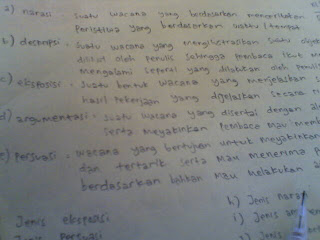 a) narasi : suatu wacana yang berdasarkan
Peristiwa yang berdasarkan waktu / tempat.
b) deskripsi : Suatu wacana yang mengilustrasikan suatu
dilihat oleh penulis sehingga pembaca ikut
mengalami seperti yang dilakukan oleh penulis
c) eksposisi : Suatu bentuk wacana yang menjelaskan
hasil pekerjaan yang dijelaskan secara
d) argumentasi : suatu wacana yang disertai dengan
Serta meyakinkan Pembaca mau
e) Persuasi : Wacana yang bertujuan untuk meyakinkan
dan tertarik serta mau menerima
berdasarkan bahkan mau melakukan
h) Jenis
Jenis eksposisi i) Jenis
Jenis Persuasi